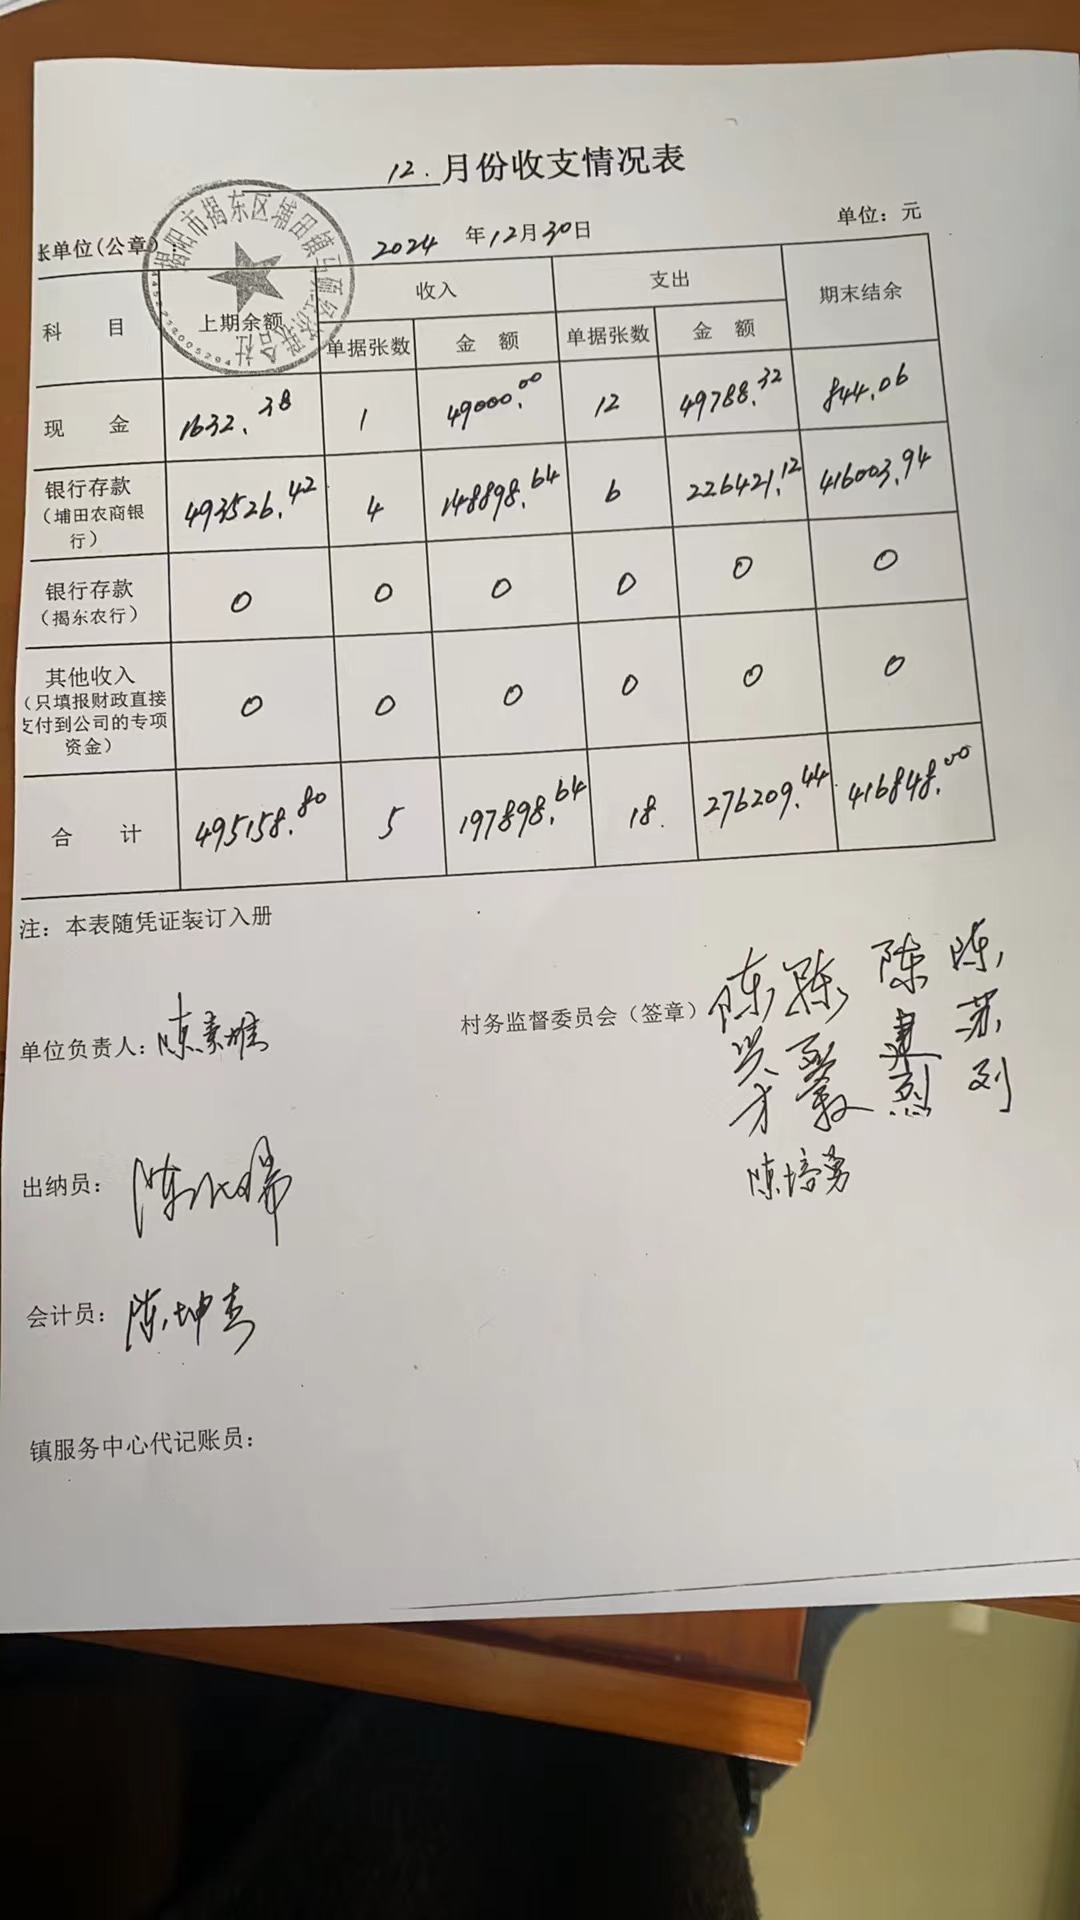 12.月份收支情况表
揭阳市揭东区埔田镇马硕经济联合社
单位(公章): 2024年12月30日 单位：元
科目 上期余额 收入 支出 期末结余
单据张数 金额 单据张数 金额
现金 1632.38 1 49000.00 12 49788.32 844.06
银行存款（埔田农商银行） 493526.42 4 148898.64 6 226421.12 416003.94
银行存款（揭东农行） 0 0 0 0 0 0
其他收入（只填报财政直接支付到公司的专项资金） 0 0 0 0 0 0
合计 495158.80 5 197898.64 18. 276209.44 416848.00
注：本表随凭证装订入册
单位负责人：陈素雄
村务监督委员会（签章） 陈 陈 陈建烈 陈苏列
陈培勇
出纳员：陈
会计员：陈坤
镇服务中心代记账员：